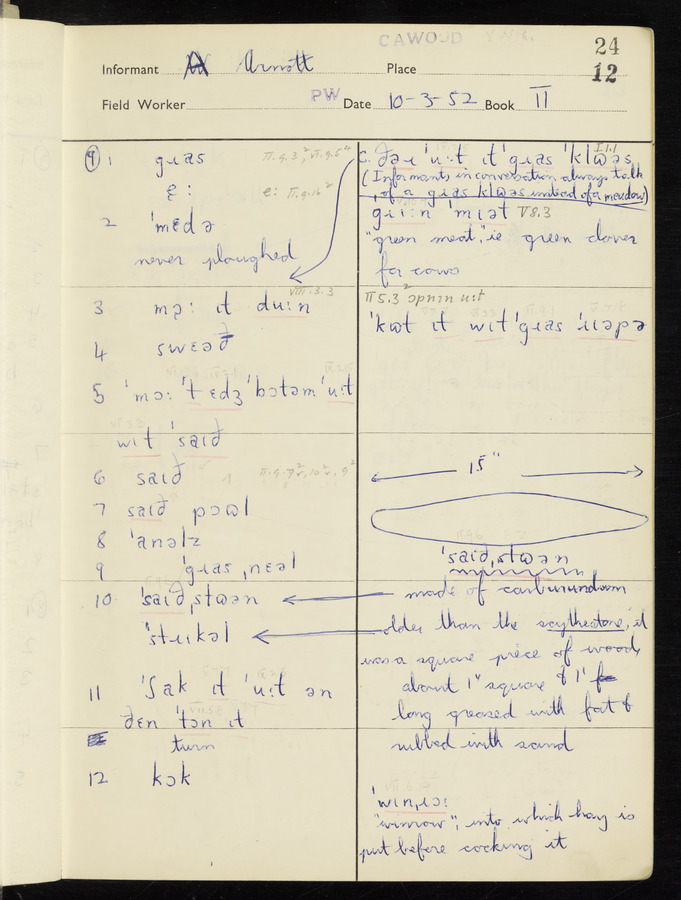 CAWOOD
24
12
Informant Arnott Place
Field Worker PW Date 10-3-52 Book II
⑨ 1 gɹas
ɛ:
2 'mɛdə
never ploughed
VIII.3.3
3 mɔ: ɪt du:n
4 swɛəð
5 'mɔ: 't ɛdʒ 'bɔtəm 'u:t
wɪt 'saɪð
6 saɪð
7 saɪð pɔʊl
8 'anəlz
9 'gɹas ˌnɛəl
10 'saɪðˌstʊən
'stɹɪkəl
11 'ʃak ɪt 'u:t ən
ðɛn 'tɔn ɪt
turn
12 kɔk
c. ðəɪ 'u:t ɪt 'gɹas 'klʊəs
(Informants in conversation always talk
of a gɹas klʊəs instead of a meadow)
'gɹi:n 'mɪət V8.3
"green meat", ie green clover
for cows
II 5.3 ɔpnɪn u:t
'kʊt ɪt wɪt 'gɹas 'ɹɪəpə
15"
'saɪdˌstʊən
made of carburundum
older than the scythestone, it
was a square piece of wood
about 1" square & 1'
long greased with fat &
rubbed with sand
'wɪnˌɹɔ:
"winrow", into which hay is
put before cocking it